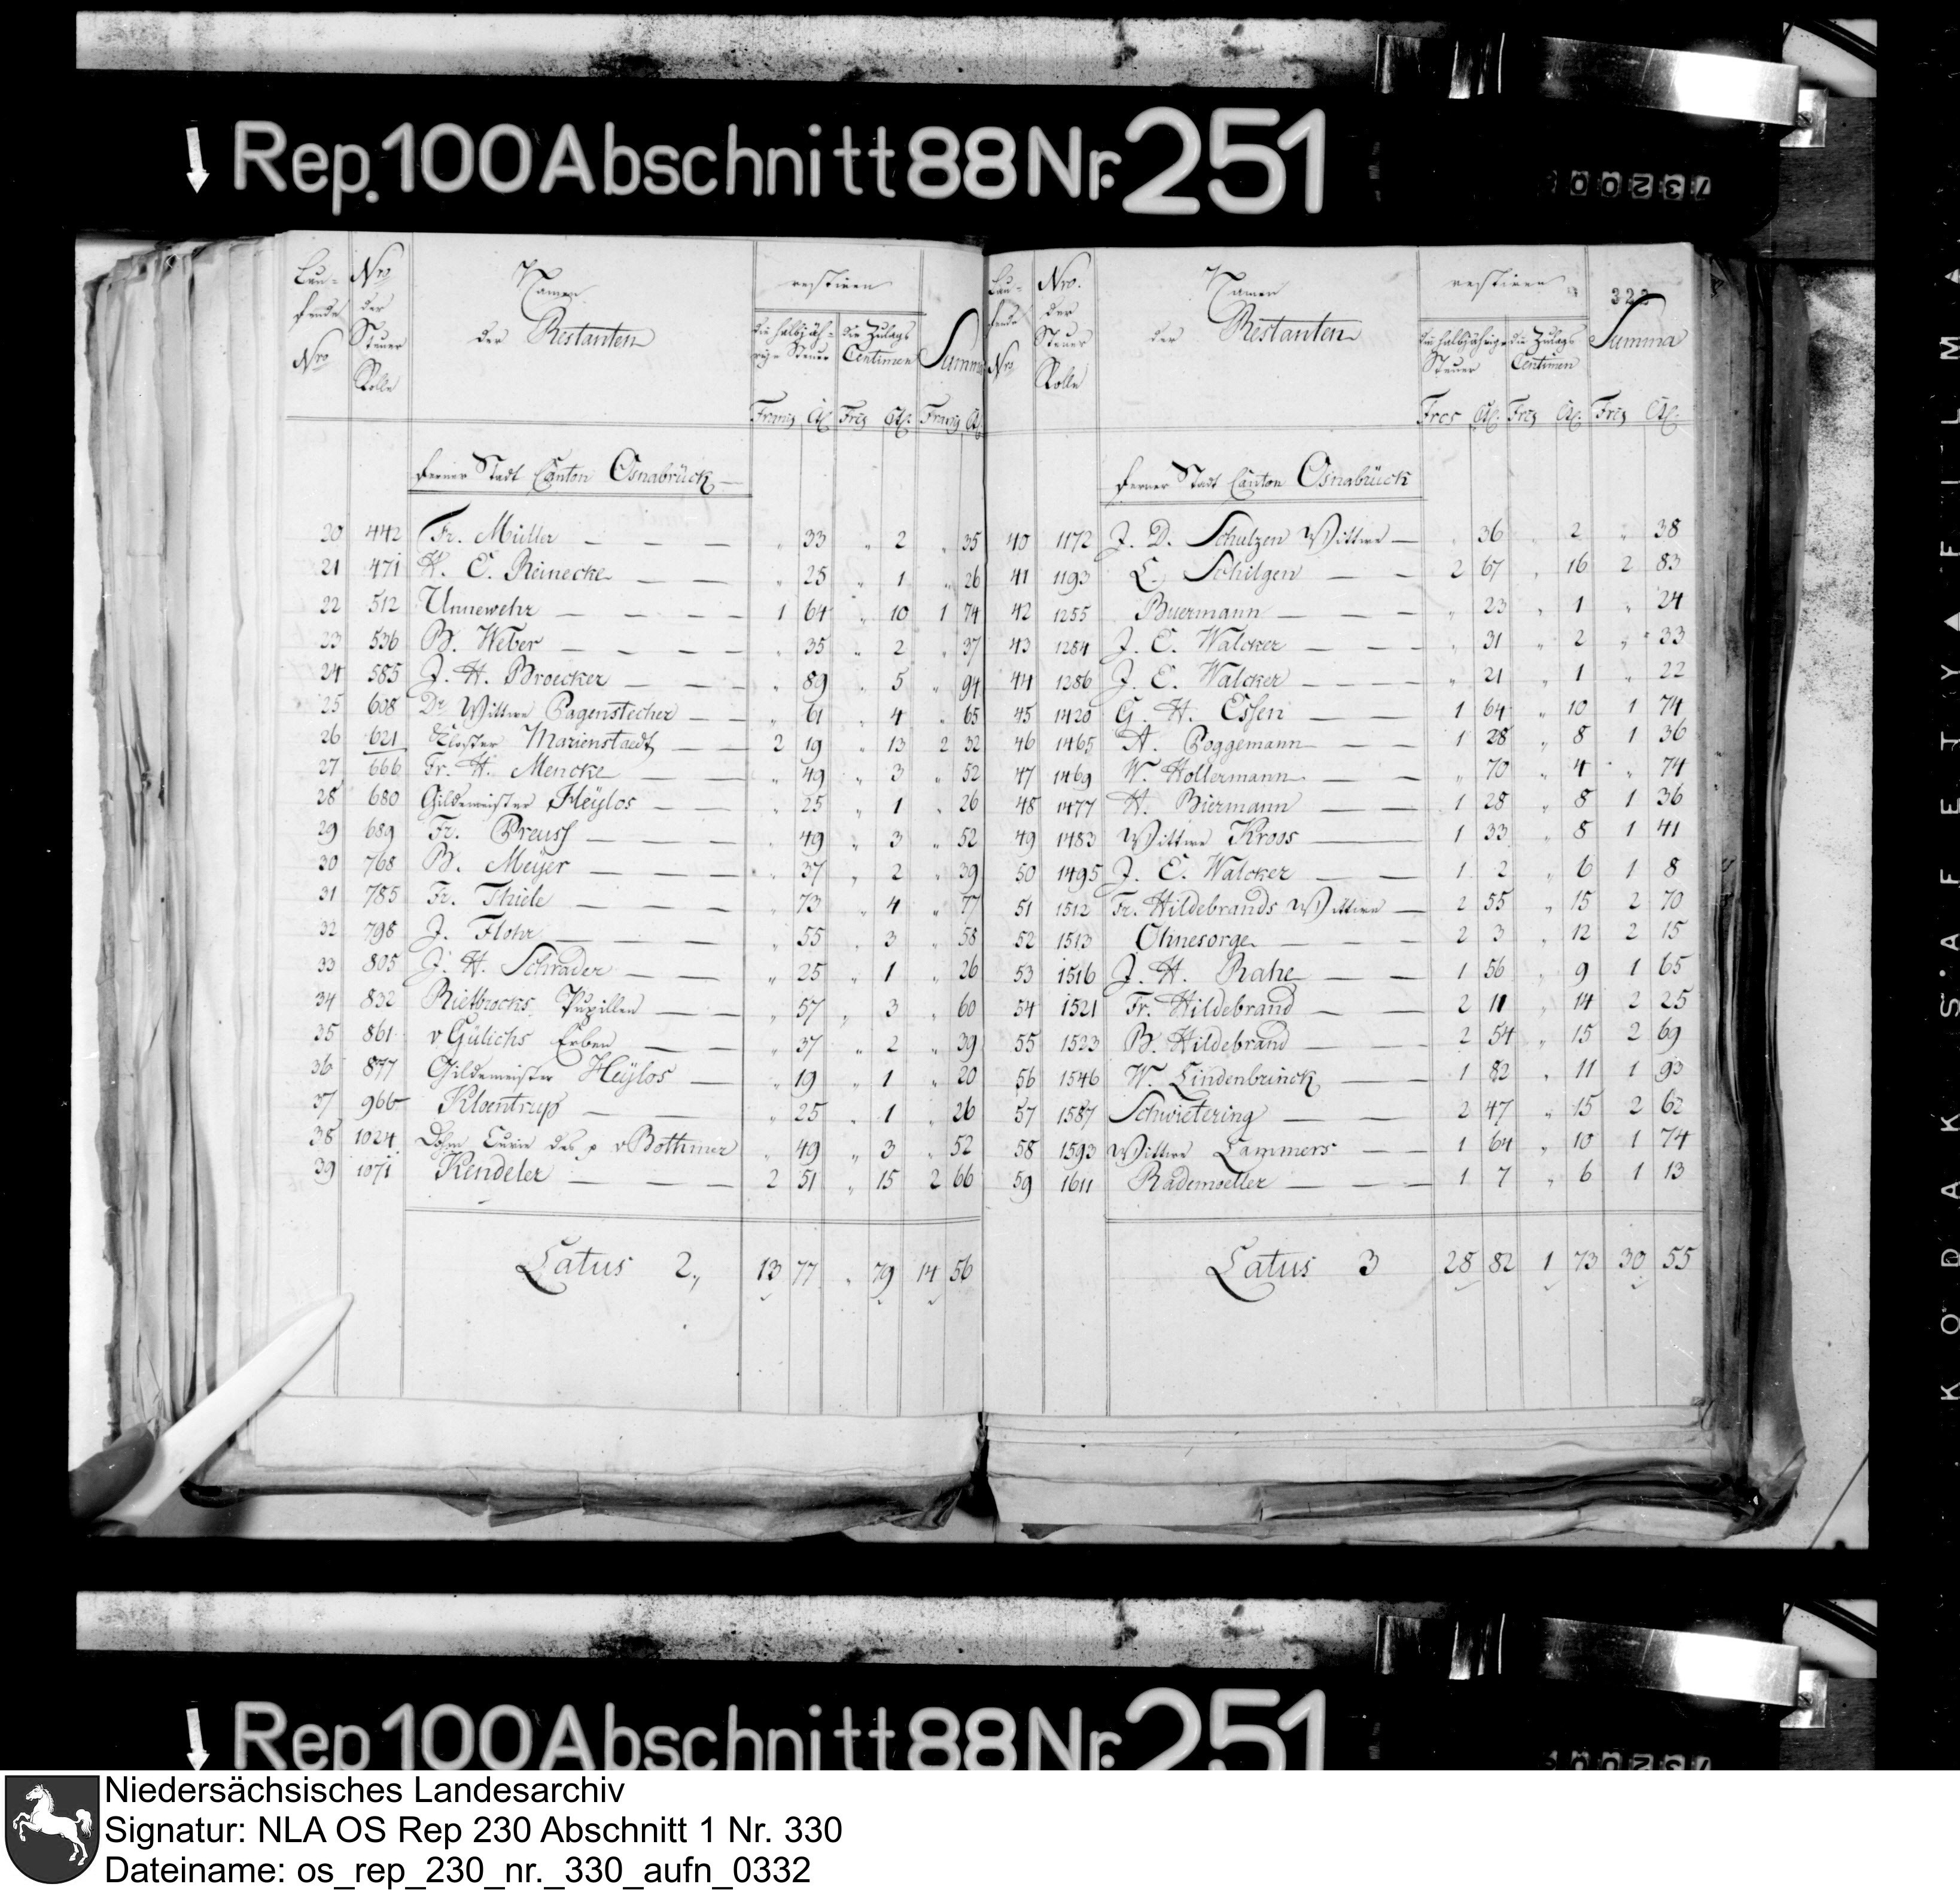 Rep. 100 Abschnitt 88 Nr: 251
Lau-
fende
Nro
Nro
der
Steuer
Rolle
Namen
der Restanten
restiren
die halbjäh-
rige Steuer
die Zulags
Centimen
Summa
Francs Ct. Frcs Ct. Francs Ct.
ferner Stadt Canton Osnabrück
20 442 Fr. Müller — — — " 33 " 2 " 35
21 471 H. E. Reinecke — — " 25 " 1 " 26
22 512 Unnewehr — — — — 1 64 " 10 1 74
23 536 B. Weber — — — — " 35 " 2 " 37
24 585 J. H. Broecker — — — " 89 " 5 " 94
25 608 Dr Wittwe Pagenstecher — — " 61 " 4 " 65
26 621 Kloster Marienstaedt — — 2 19 " 13 2 32
27 666 Fr. H. Mencke — — " 49 " 3 " 52
28 680 Gildemeister Heÿlos — — " 25 " 1 " 26
29 689 Fr. Preuss — — — " 49 " 3 " 52
30 768 B. Meÿer — — — " 37 " 2 " 39
31 785 Fr. Thiele — — — " 73 " 4 " 77
32 798 J. Flohr — — — " 55 " 3 " 58
33 805 J. H. Schrader — — " 25 " 1 " 26
34 832 Rietbrocks Pupillen — — " 57 " 3 " 60
35 861 v Gülichs Erben — — " 37 " 2 " 39
36 877 Gildemeister Heÿlos — " 19 " 1 " 20
37 966 Kloentrup — — — " 25 " 1 " 26
38 1024 Dohm Curie des p v Bothmer " 49 " 3 " 52
39 1071 Kendeler — — — 2 51 " 15 2 66
Latus 2,, 13 77 " 79 14 56
322
Lau-
fende
Nro
Nro.
der
Steuer
Rolle
Namen
der Restanten
restiren
die halbjährige
Steuer
die Zulags
Centimen
Summa
Frcs Ct. Frcs Ct. Frcs Ct.
ferner Stadt Canton Osnabrück
40 1172 J. D. Schulzen Wittwe — " 36 " 2 " 38
41 1193 L. Schilgen — — 2 67 " 16 2 83
42 1255 Buermann — — — " 23 " 1 " 24
43 1284 J. E. Walcker — — — " 31 " 2 " 33
44 1286 J. E. Walcker — — — " 21 " 1 " 22
45 1420 G. H. Essen — — 1 64 " 10 1 74
46 1465 A. Poggemann — — 1 28 " 8 1 36
47 1469 W. Hollermann — — " 70 " 4 " 74
48 1477 H. Biermann — — 1 28 " 8 1 36
49 1483 Wittwe Kross — 1 33 " 8 1 41
50 1495 J. E. Walcker — — 1 2 " 6 1 8
51 1512 Fr. Hildebrands Wittwe — 2 55 " 15 2 70
52 1513 Ohnesorge — — — 2 3 " 12 2 15
53 1516 J. H. Rahe — — 1 56 " 9 1 65
54 1521 Fr. Hildebrand — — 2 11 " 14 2 25
55 1523 B. Hildebrand — — 2 54 " 15 2 69
56 1546 W. Lindenbrinck — — 1 82 " 11 1 93
57 1587 Schwietering — — 2 47 " 15 2 62
58 1593 Wittwe Lammers — — 1 64 " 10 1 74
59 1611 Rademoeller — — — 1 7 " 6 1 13
Latus 3 28 82 1 73 30 55
KODAK SAFETY FILM
Rep. 100 Abschnitt 88 Nr: 251
Niedersächsisches Landesarchiv
Signatur: NLA OS Rep 230 Abschnitt 1 Nr. 330
Dateiname: os_rep_230_nr._330_aufn_0332